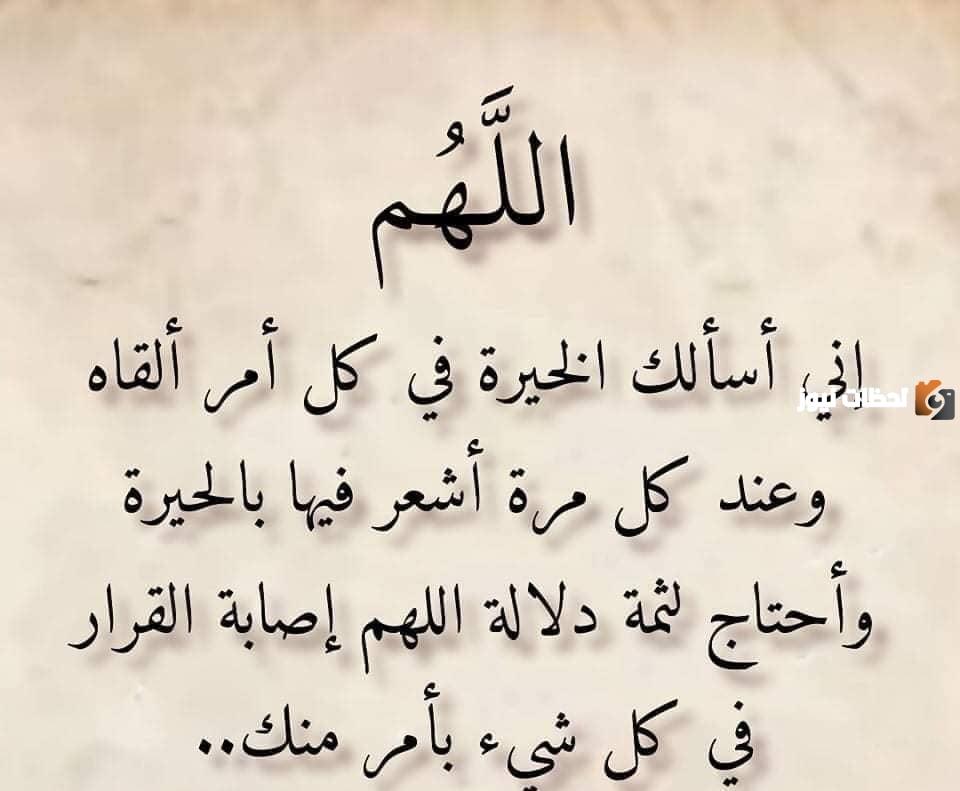 اللَّهُم
إني أسألك الخيرة في كل أمر ألقاه
لحظات نيوز
وعند كل مرة أشعر فيها بالحيرة
وأحتاج لثمة دلالة اللهم إصابة القرار
في كل شيء بأمر منك..